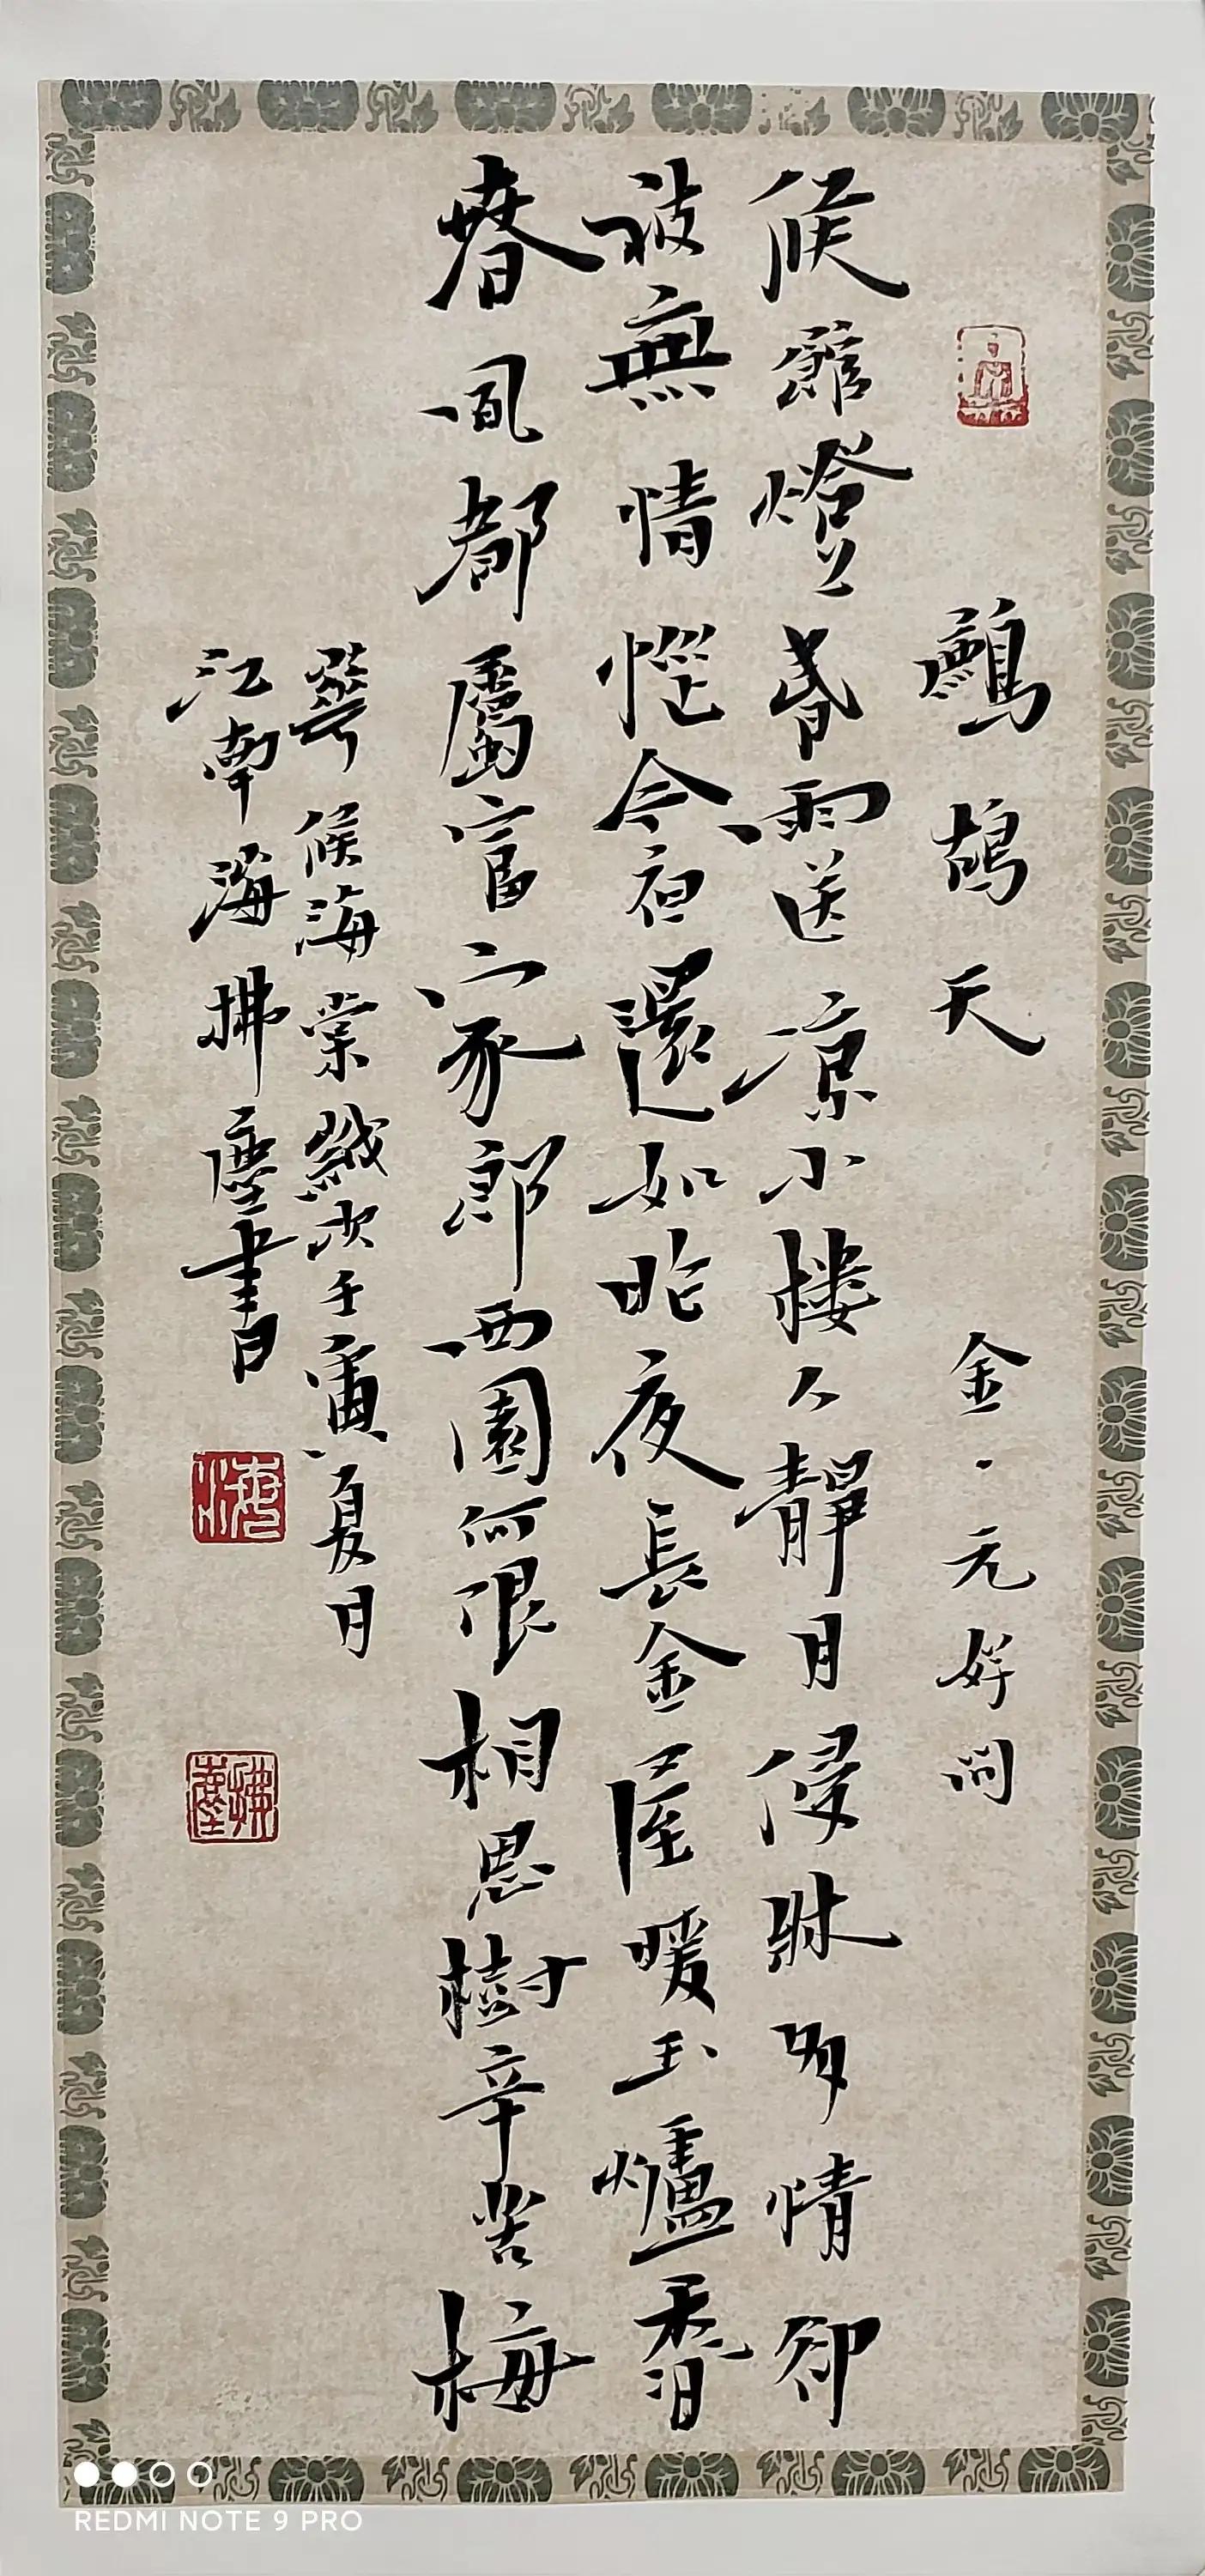 鷓鴣天 金·元好問
候館燈昏雨送凉小樓人靜月侵牀多情卻
被無情惱今夜還如昨夜長金屋暖玉爐香
春風都屬富家郎西園何限相思樹辛苦梅
華候海棠歲次壬寅夏月
江南海拂塵書
海
拂塵
REDMI NOTE 9 PRO